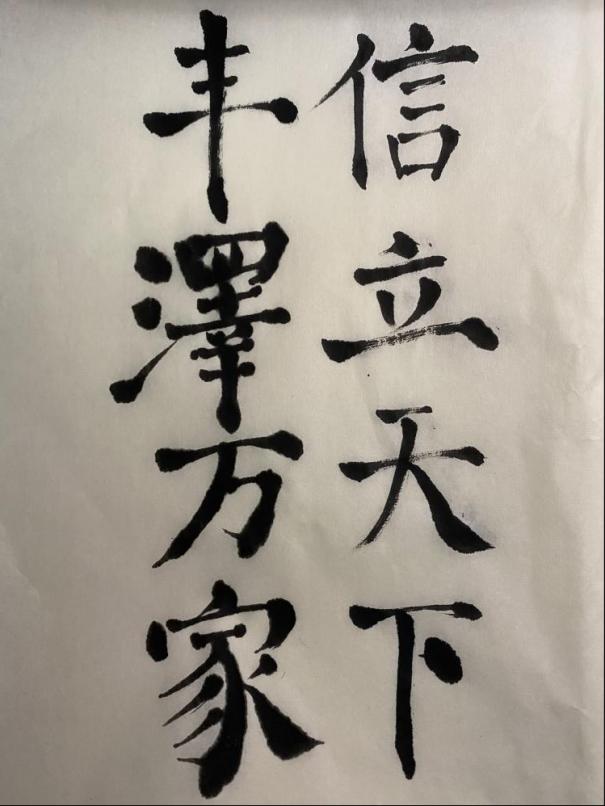 信立天下
丰澤万家